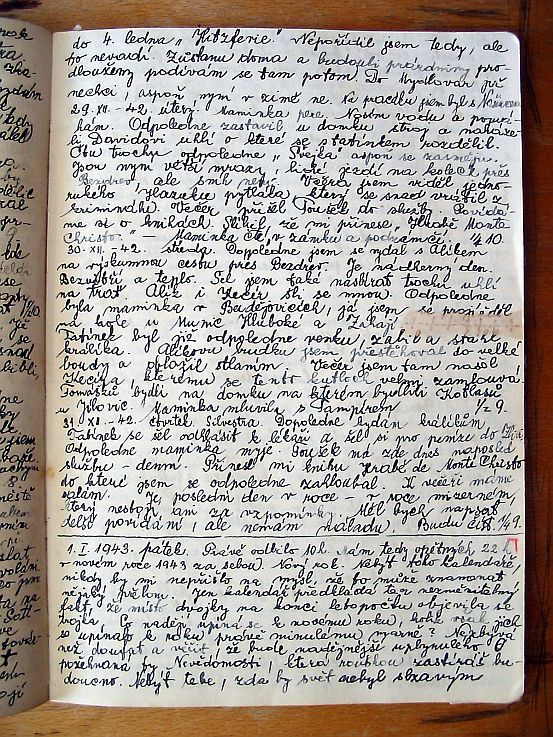 do 4. ledna „Kitzferie". Nepořídil jsem tedy, ale
to nevadí. Zůstanu doma a budouli prázdniny pro-
dlouženy podívám se tam potom. Do Mydlovar již
nechci, aspoň nyní v zimě ne. Na prádlu jsem byl s
29. XII. - 42, úterý. Maminka pere. Nosím vodu a
kám. Odpoledne zastavil u domku stroj a naháze-
li Davidovi uhlí o které se s tatínkem rozdělil.
Čtu trochu odpoledne „Švejka" aspoň se zasměji.
Jsou nyní větší mrazy, lidé jezdí na kolech přes
Bezdrev, ale sníh není. Večera jsem viděl jedno-
rukého Hlazeku pytláka, který se snad vrátil z
kriminálu. Večer přišel Toušek do služby. Povídá-
me si o knihách. Slíbil že mi přinese „Hrabě Monte
Christo." — Maminka čte „V zámku a podzámčí. ½ 10.
30. XII. - 42. středa. Dopoledne jsem se vydal s Alíkem
na výzkumnou cestu přes Bezdrev. Je nádherný den.
Bezvětří a teplo. Šel jsem také nasbírat trochu uhlí
na trať. Alík i Kecér šli se mnou. Odpoledne
byla maminka v Budějovicích, já jsem se projížděl
na kole u Munic Hluboké a Zahájí.
Tatínek byl již odpoledne venku, zabil a stáhl
králíka. Alíkovu budku jsem přestěhoval do velké
boudy a obložil stlaním. Večer jsem tam našel
Kecéra, kterému se tento kutloch velmi zamlouvá.
Tomášků bydlí na domku na kterém bydleli Kotlasů
u Jílovic. Maminka mluvila s ½ 9.
31. XII. - 42. čtvrtek Silvestra. Dopoledne kydám králíkům.
Tatínek se šel odhlásit k lékaři a šel si pro penze do
Odpoledne maminka myje. Toušek má zde dnes naposled
službu - denní. Přinesl mi knihu Hrabě de Monte Christo
do které jsem se odpoledne zahloubal. K večeři máme
salám. Je poslední den v roce – v roce mizerném,
který nestojí ani za vzpomínky. Měl bych napsat
delší povídání, ale nemám náladu. Budu číst ¼ 9.
1. I. 1943. pátek. Právě odbilo 10 h. Mám tedy opětných 22 h
v novém roce 1943 za sebou. Nový rok. Nebýt toho kalendáře,
nikdy by mi nepřišlo na mysl, že to může znamenat
nějaký přelom. Jen kalendář předkládá ten nezměnitelný
fakt, že místo dvojky na konci letopočtu objevila se
trojka. Co nadějí upíná se k novému roku, kolik však jich
se upínalo k roku právě minulému marně? Nezbývá
než doufat a věřit, že bude nadějnější uplynulého. Ó
požehnaná by Nevědomosti, která rouškou zastíráš bu-
doucno. Nebýt tebe, zda by svět nebyl sžíravým